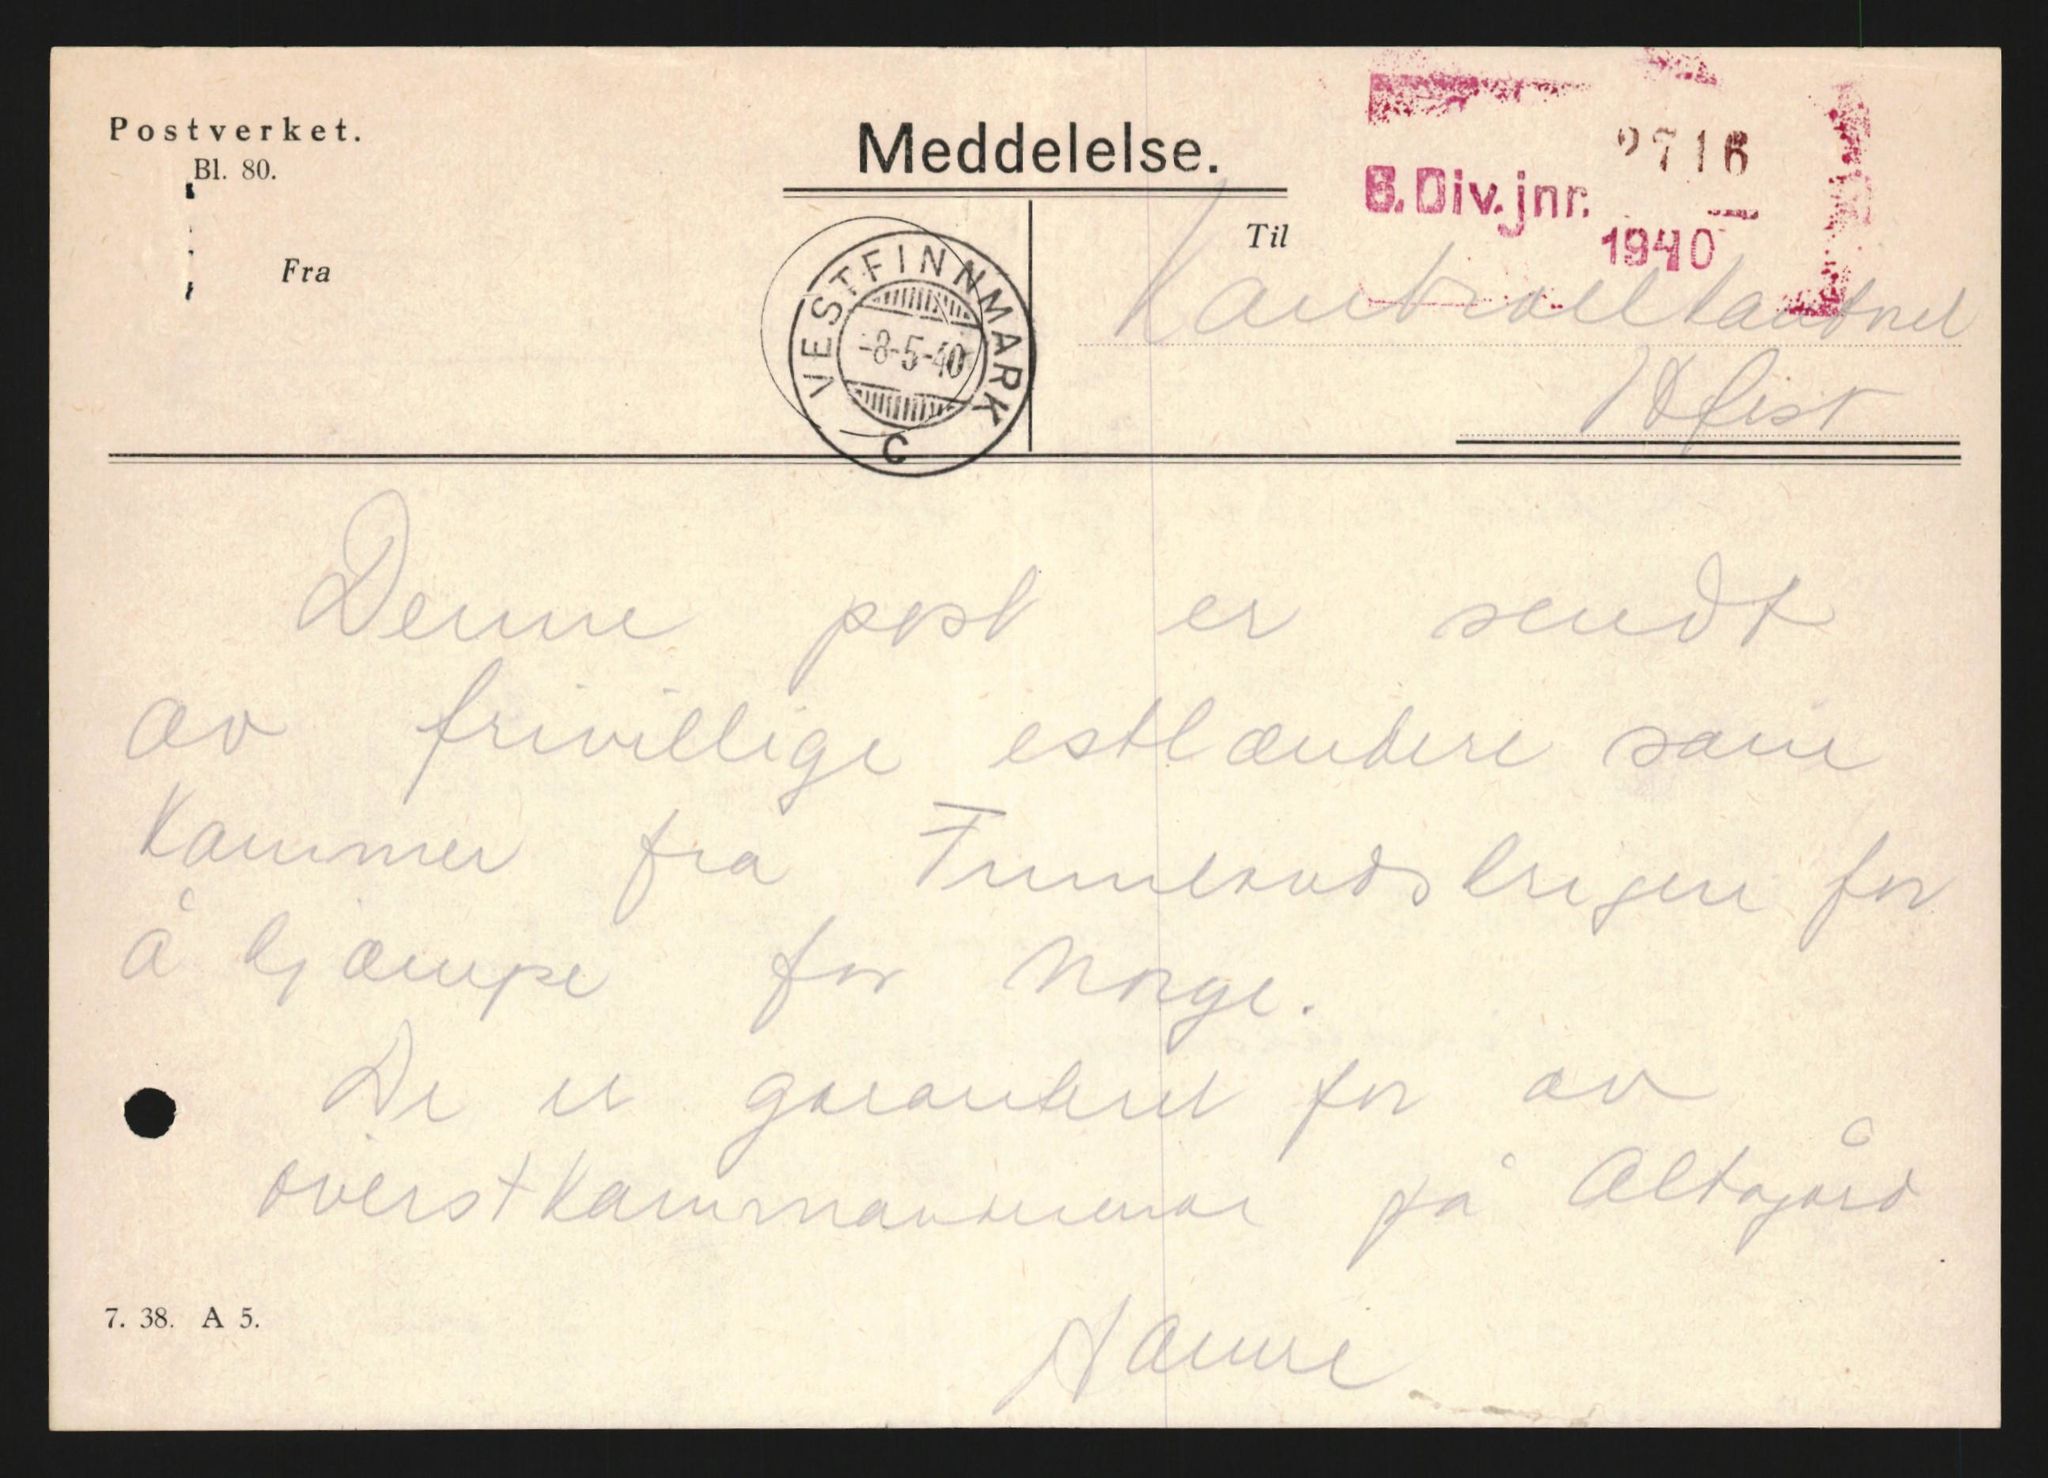 Postverket.
Bl. 80.
Meddelelse.
2716
6. Div. jnr.
1940
Fra
Til
VESTFINNMARK
-8-5-40
C
Kontrollkontoret
H.fest
Denne post er sendt
av frivillige estlændere som
kommer fra Finnlandskrigen for
å kjæmpe for Norge.
De er garantert for av
øverstkommanderende på Altagård
7. 38. A 5.